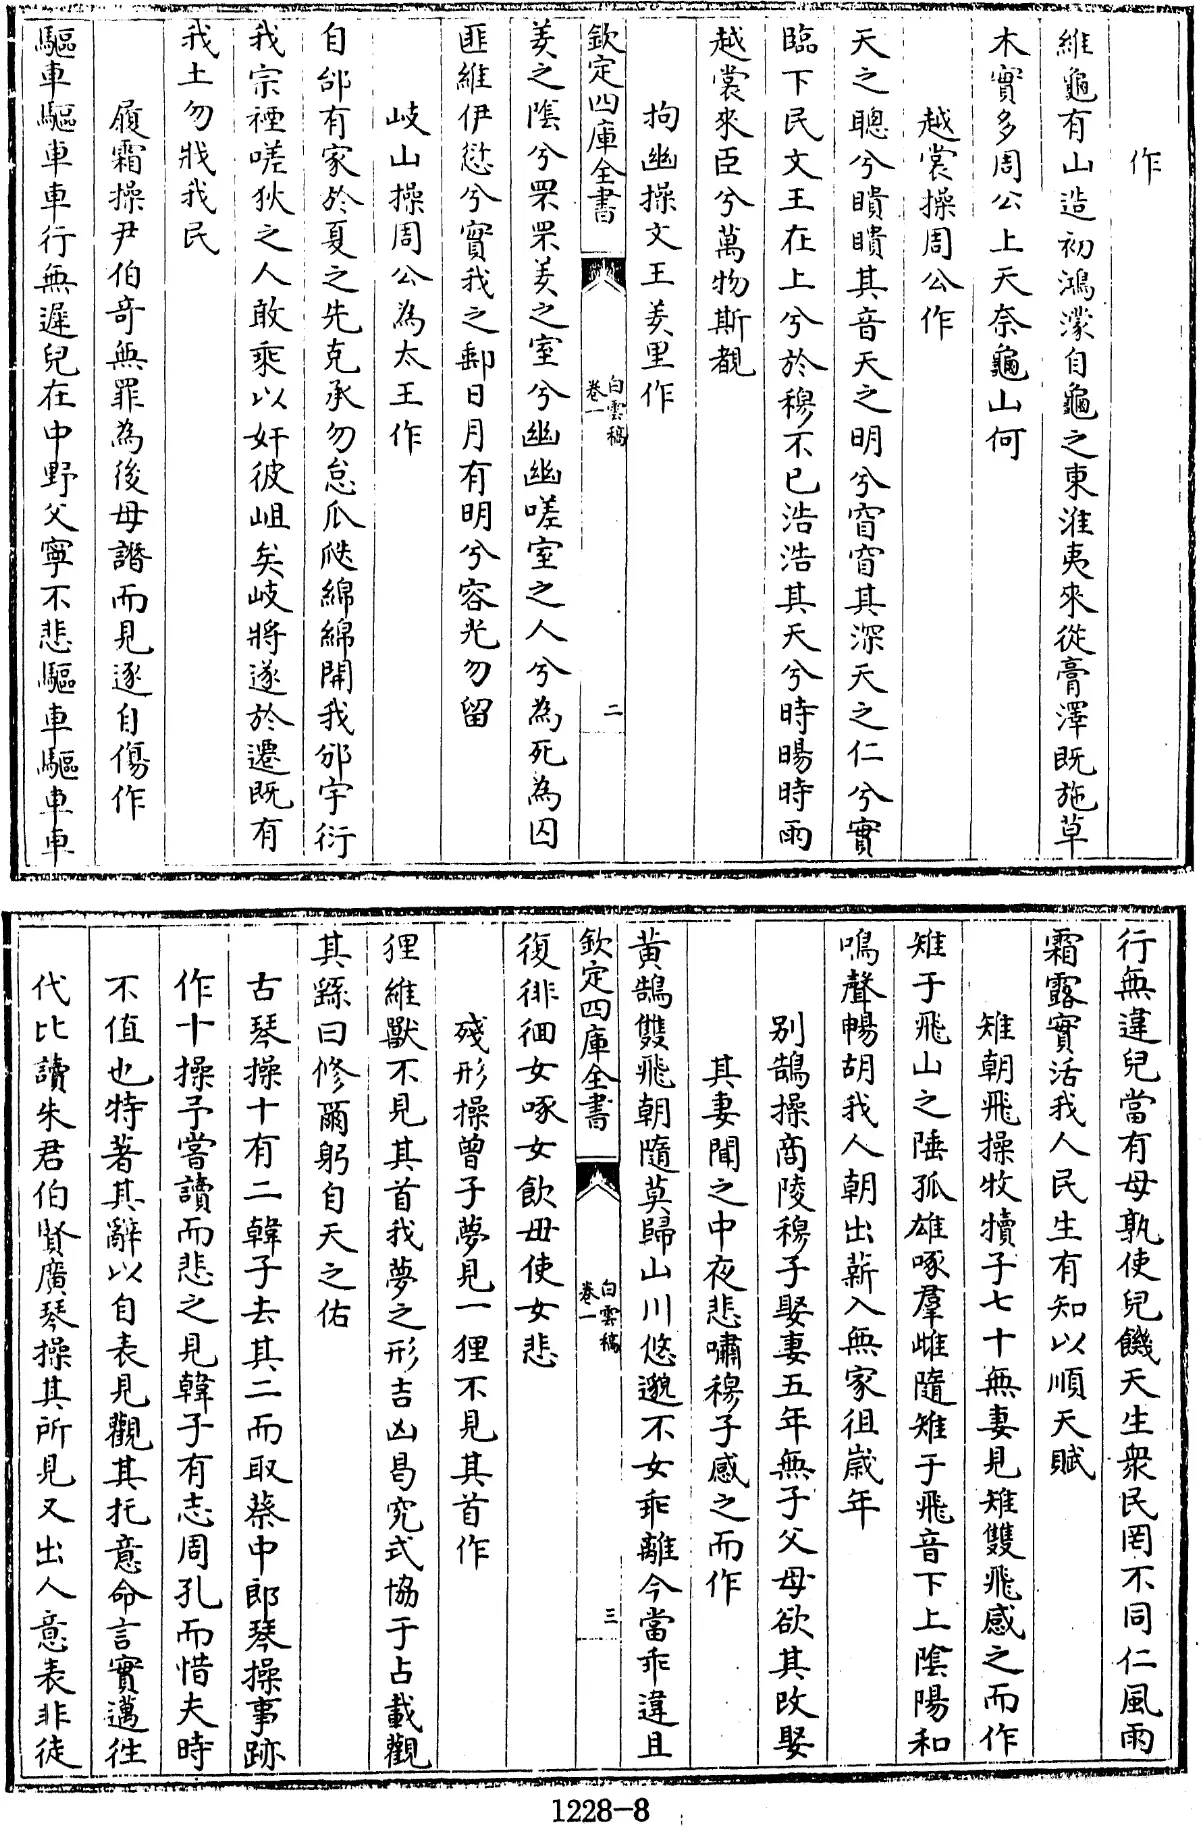 作
維龜有山造初鴻濛自龜之東淮夷來從膏澤既施草
木實多周公上天奈龜山何
越裳操周公作
天之聰兮瞶瞶其音天之明兮窅窅其深天之仁兮實
臨下民文王在上兮於穆不已浩浩其天兮時暘時雨
越裳來臣兮萬物斯覩
拘幽操文王羑里作
欽定四庫全書
白雲稿
卷一
二
羑之陰兮罘罘羑之室兮幽幽嗟室之人兮為死為囚
匪維伊愆兮實我之郵日月有明兮容光勿留
岐山操周公為太王作
自邰有家於夏之先克承勿怠瓜瓞綿綿開我邠宇衍
我宗禋嗟狄之人敢乘以奸彼岨矣岐將遂於遷既有
我土勿戕我民
履霜操尹伯奇無罪為後母譖而見逐自傷作
驅車驅車車行無遲兒在中野父寧不悲驅車驅車車
行無違兒當有母孰使兒饑天生衆民罔不同仁風雨
霜露實活我人民生有知以順天賦
雉朝飛操牧犢子七十無妻見雉雙飛感之而作
雉于飛山之陲孤雄啄羣雌隨雉于飛音下上陰陽和
鳴聲暢胡我人朝出薪入無家徂歲年
别鵠操商陵穆子娶妻五年無子父母欲其改娶
其妻聞之中夜悲嘯穆子感之而作
黄鵠雙飛朝隨莫歸山川悠邈不女乖離今當乖違且
欽定四庫全書
白雲稿
卷一
三
復徘徊女啄女飲毋使女悲
殘形操曾子夢見一狸不見其首作
狸維獸不見其首我夢之形吉凶曷究式協于占載觀
其繇曰修爾躬自天之佑
古琴操十有二韓子去其二而取蔡中郎琴操事跡
作十操予嘗讀而悲之見韓子有志周孔而惜夫時
不值也特著其辭以自表見觀其托意命言實邁徃
代比讀朱君伯賢廣琴操其所見又出人意表非徒
1228-8